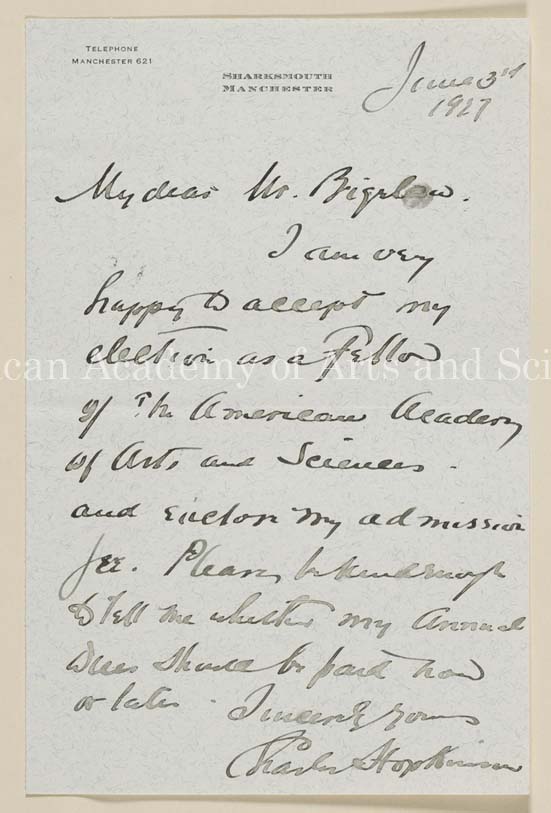 TELEPHONE
MANCHESTER 621
SHARKSMOUTH
MANCHESTER
June 3rd
1927
My dear Mr. Bigelow.
I am very
happy to accept my
election as a Fellow
can Academy of Arts and Sci
of The American Academy
of Arts and Sciences.
and enclose my admission
fee. Please, be kind enough
to tell me whether my Annual
Dues should be paid now
or later.
Sincerely yours
Charles Hopkinson